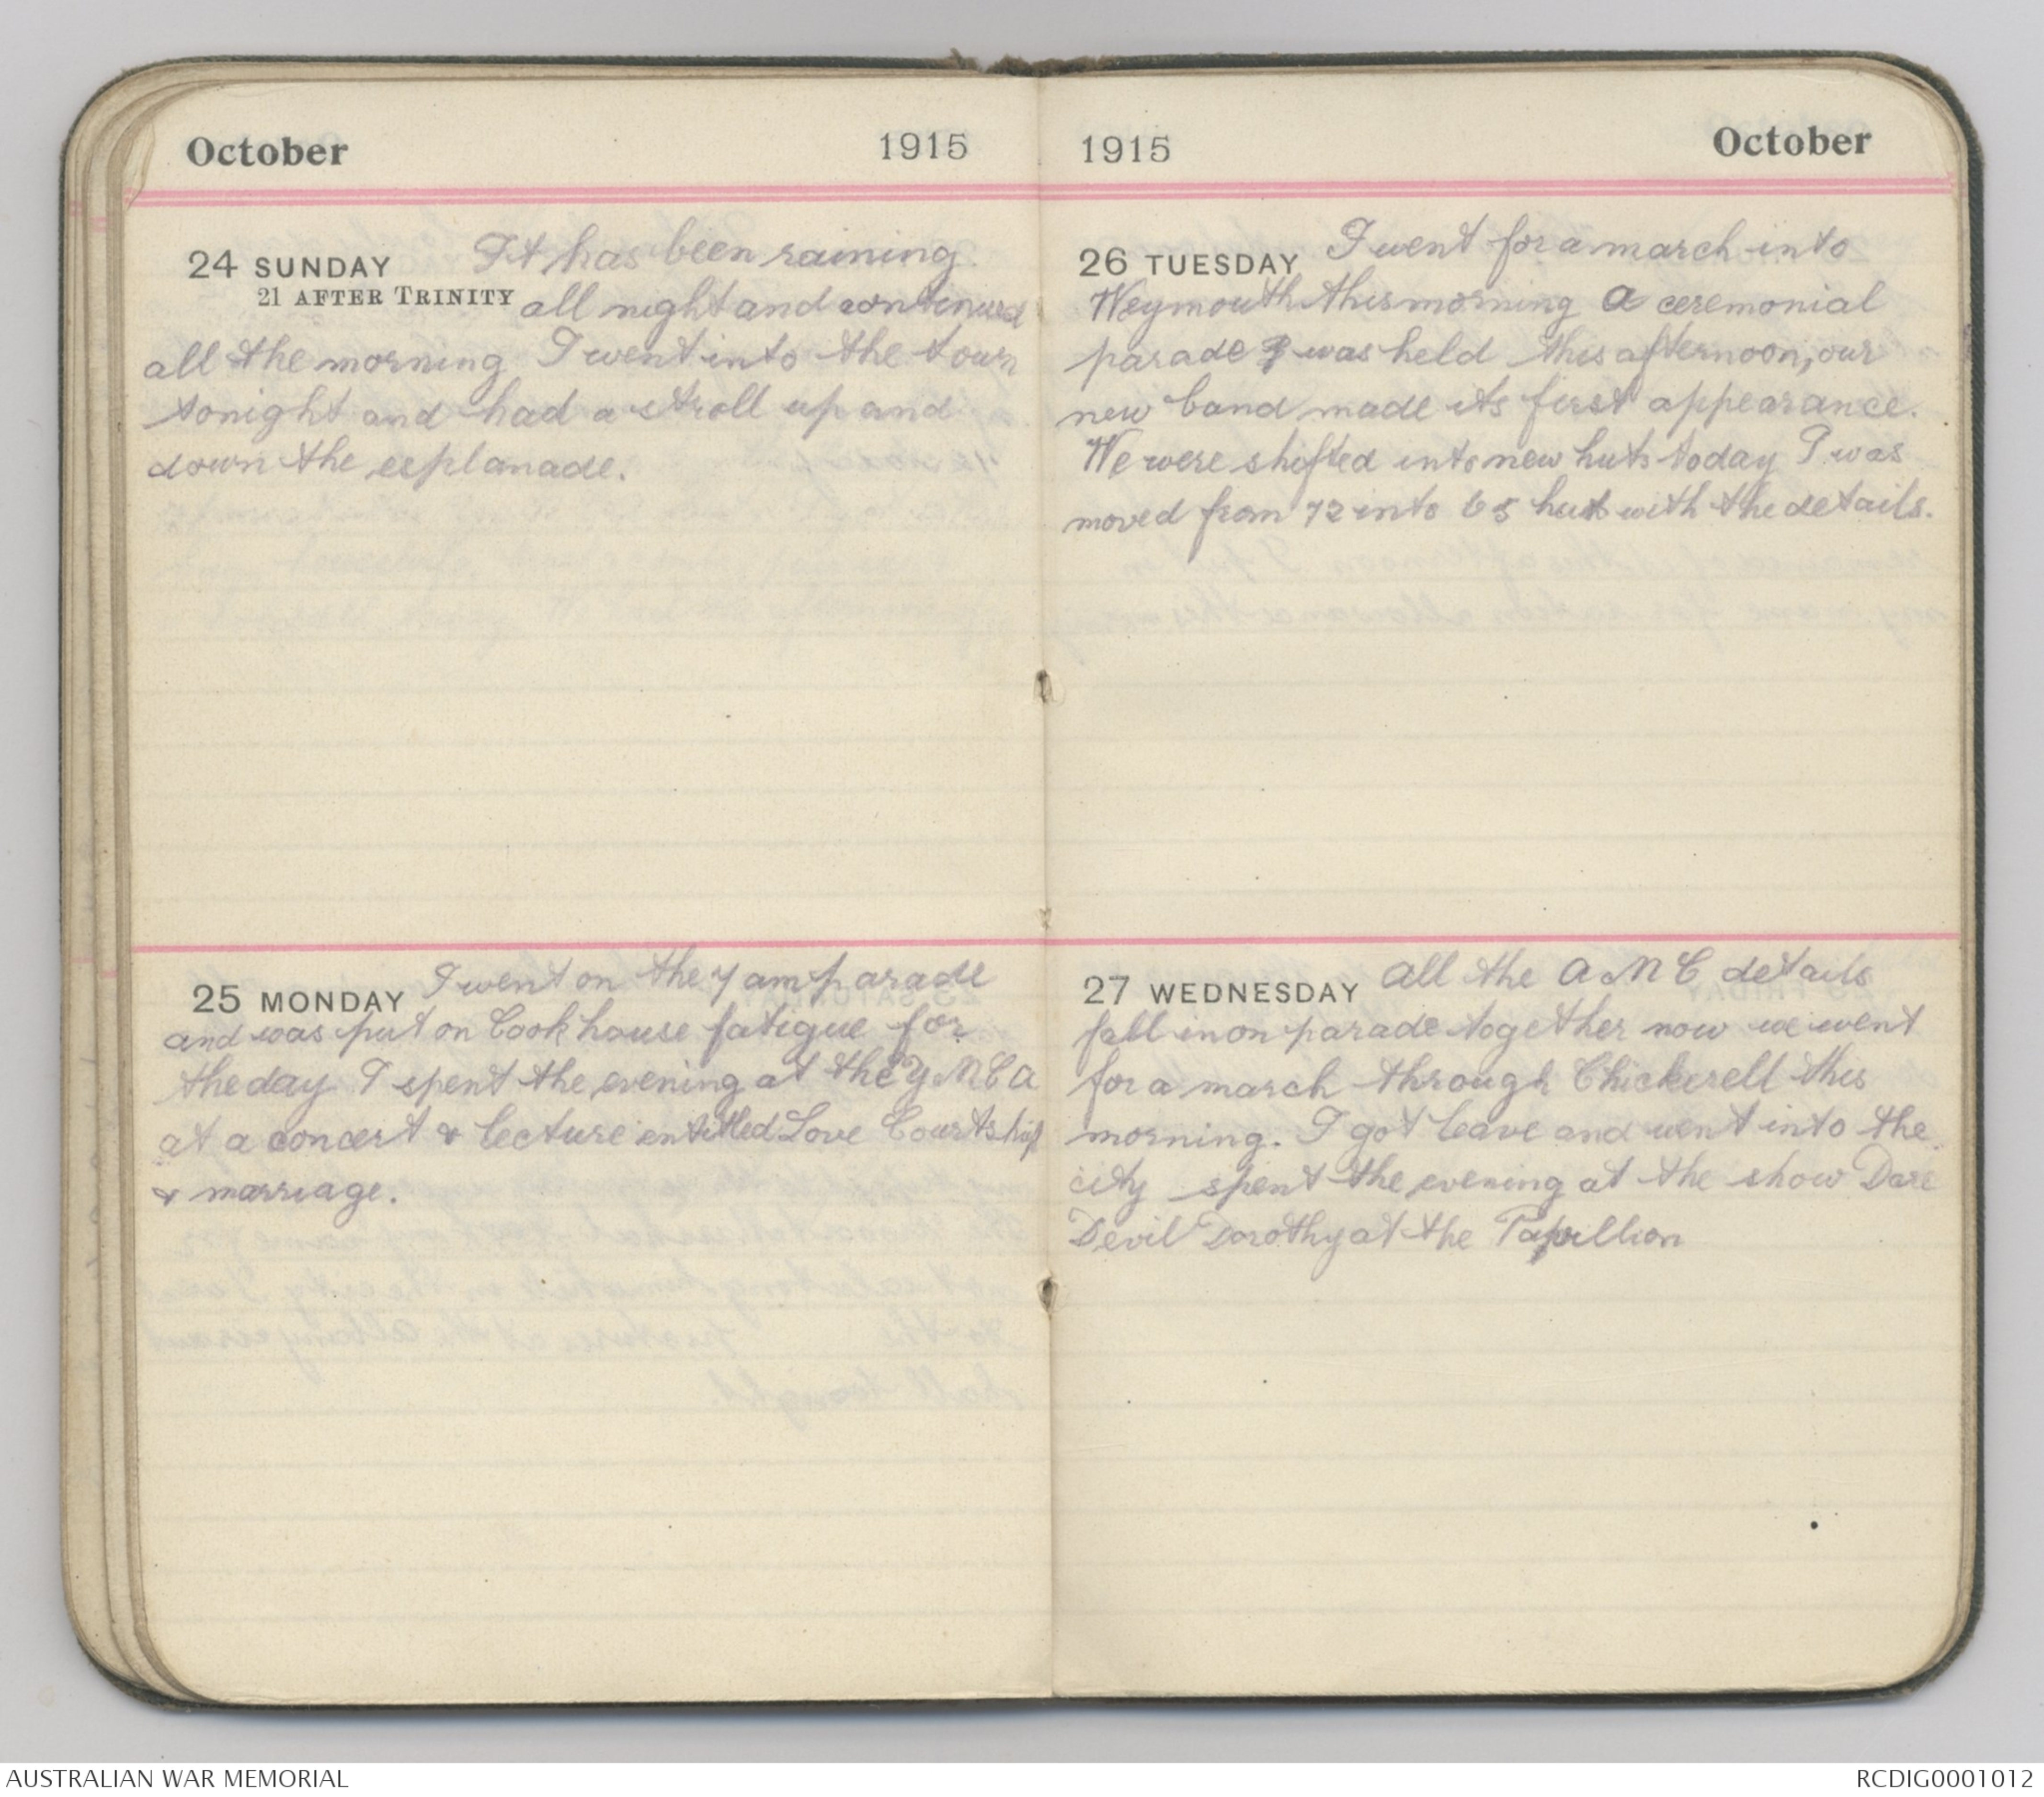 October 1915
24 SUNDAY It has been raining
21 AFTER TRINITY all night and continued
all the morning I went into the town
tonight and had a stroll up and
down the esplanade.
25 MONDAY I went on the 7 am parade
and was put on Cook house fatigue for
the day I spent the evening at the Y M C A
at a concert & lecture entitled Love Courtship
& marriage.
1915 October
26 TUESDAY I went for a march into
Weymouth this morning A ceremonial
parade was held this afternoon, our
new band made its first appearance.
We were shifted into new huts today I was
moved from 72 into 65 hut with the details.
27 WEDNESDAY All the A M C details
fall in on parade together now we went
for a march through Chickerell this
morning. I got leave and went into the
city spent the evening at the show Dare
Devil Dorothy at the
AUSTRALIAN WAR MEMORIAL RCDIG0001012